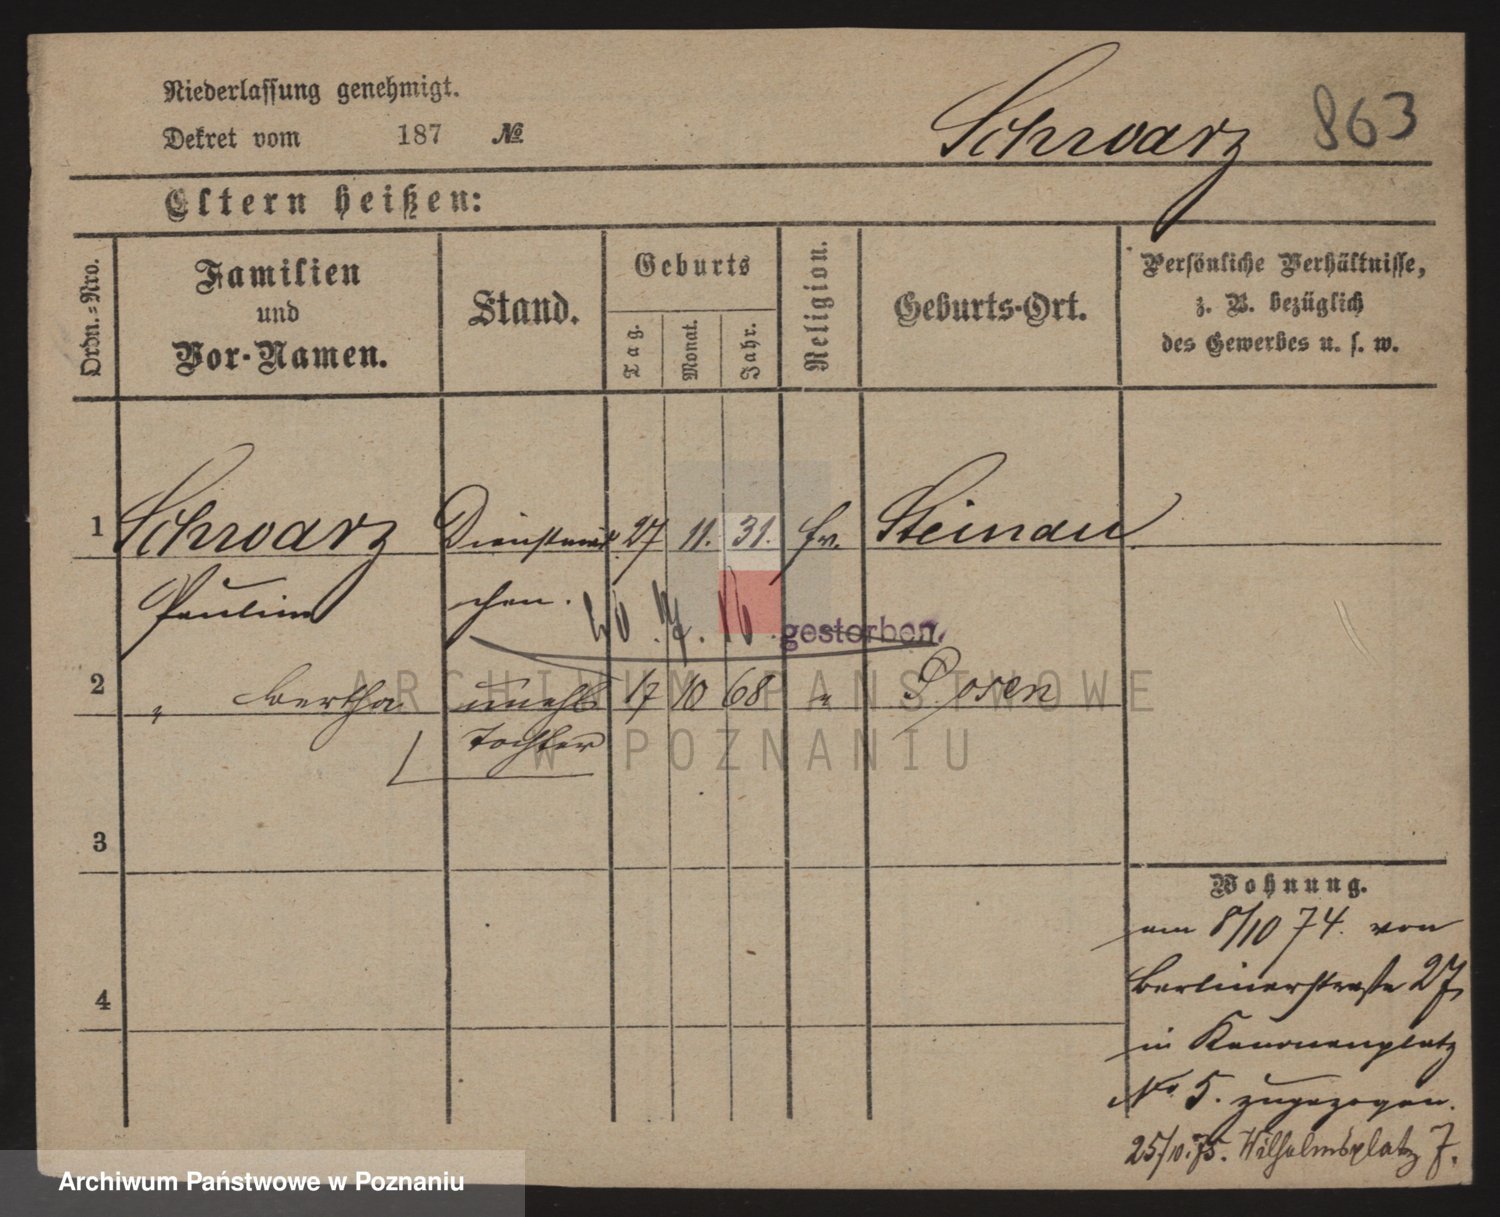 Niederlassung genehmigt.
Dekret vom 187 №
Schwarz 863
Eltern heißen:
Ordn.=Nro.
Familien
und
Vor-Namen.
Stand.
Geburts
Tag.
Monat.
Jahr.
Religion.
Geburts-Ort.
Persönliche Verhältnisse,
z. B. bezüglich
des Gewerbes u. s. w.
1 Schwarz Dienstmäd 27 11. 31. Steinau
Pauline chen. 7. 16 gestorben.
2 " Bertha unehl 17 10 68 " Posen
Tochter
3
4
Wohnung.
am 8/10 74. von
Berlinerstraße 27
in Kanonenplatz
No 5. zugezogen.
25/10.75. Wilhelmsplatz 7.
ARCHIWUM PAŃSTWOWE
W POZNANIU
Archiwum Państwowe w Poznaniu